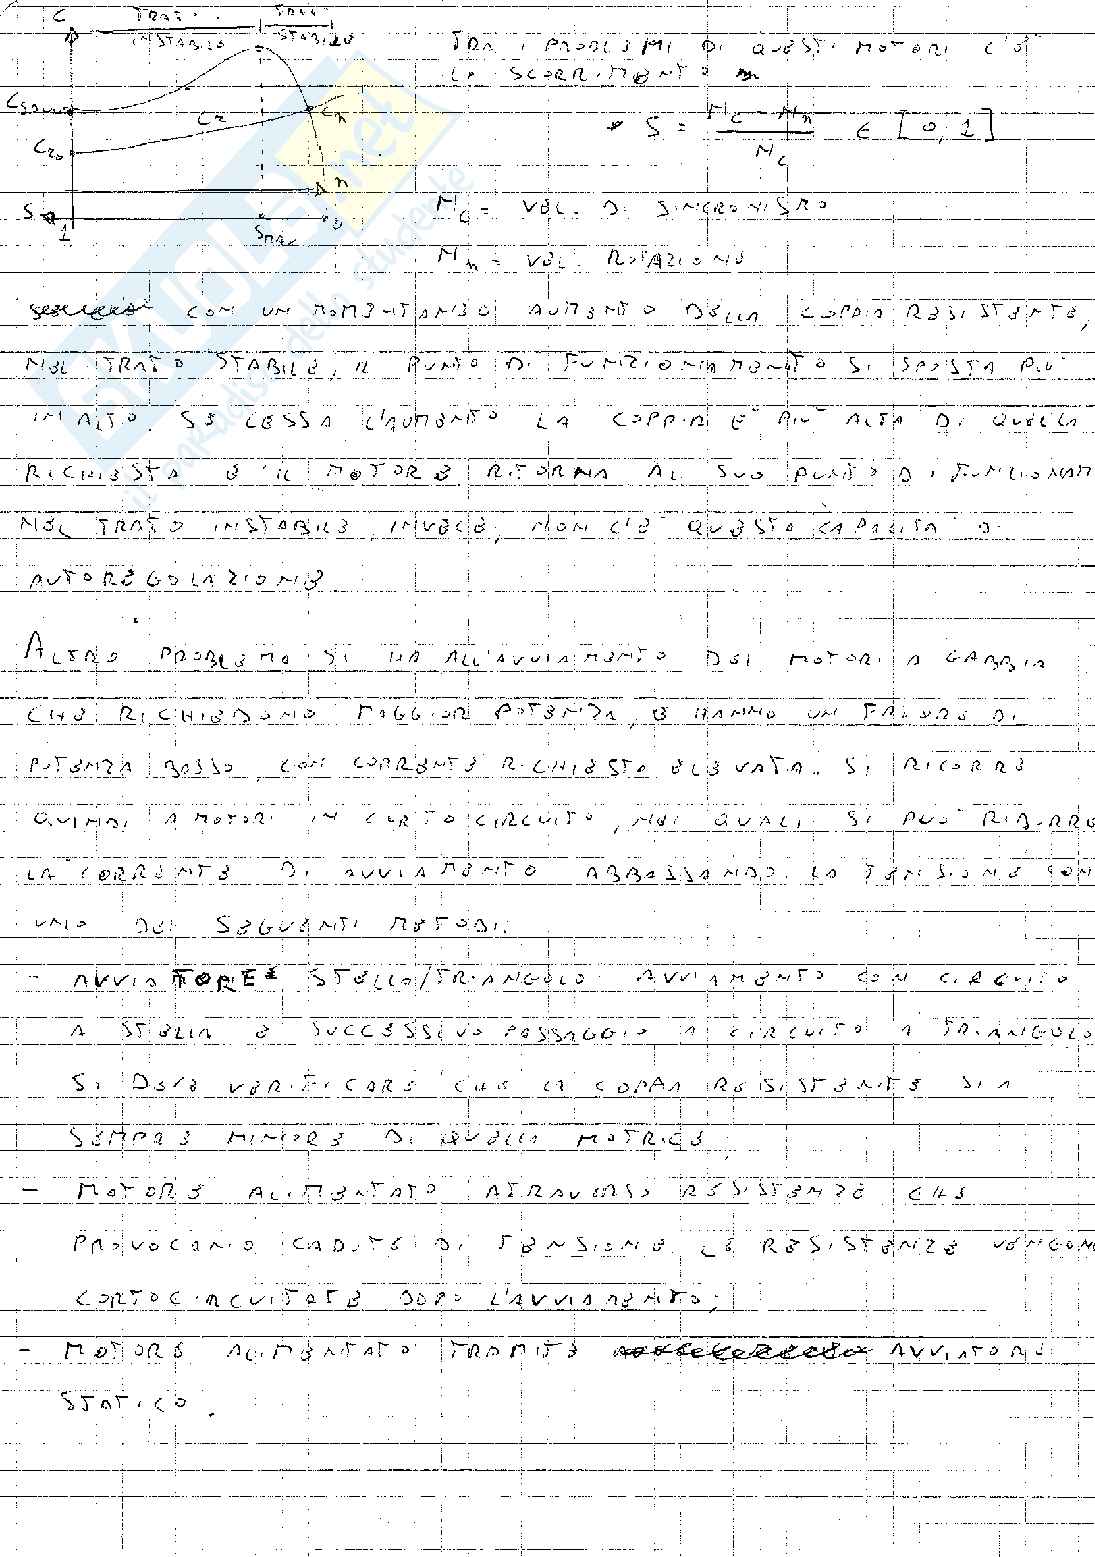 C
TRATTO
INSTABILE
TRATTO
STABILE
Cr
Cn
Cr0
n
S
1
0
TRA I PROBLEMI DI QUESTI MOTORI C'È
LO SCORRIMENTO
S = (Nc - Nn) / Nc ∈ [0,1]
Nc = VEL. DI SINCRONISMO
Nn = VEL. ROTAZIONE
CON UN MOMENTANEO AUMENTO DELLA COPPIA RESISTENTE,
NEL TRATO STABILE, IL PUNTO DI FUNZIONAMENTO SI SPOSTA PIÙ
IN ALTO. SE CESSA L'AUMENTO LA COPPIA È PIÙ ALTA DI QUELLA
RICHIESTA E IL MOTORE RITORNA AL SUO PUNTO DI FUNZIONAM
NEL TRATO INSTABILE, INVECE, NON C'È QUESTA CAPACITÀ DI
AUTOREGOLAZIONE
ALTRO PROBLEMA SI HA ALL'AVVIAMENTO DEI MOTORI A GABBIA
CHE RICHIEDONO MAGGIOR POTENZA, E HANNO UN FATTORE DI
POTENZA BASSO, CON CORRENTE RICHIESTA ELEVATA. SI RICORRE
QUINDI A MOTORI IN CORTO CIRCUITO, NEI QUALI SI PUÒ RIDURRE
LA CORRENTE DI AVVIAMENTO ABBASSANDO LA TENSIONE CON
UNO DEI SEGUENTI METODI:
- AVVIATORE STELLA/TRIANGOLO: AVVIAMENTO CON CIRCUITO
A STELLA E SUCCESSIVO PASSAGGIO A CIRCUITO A TRIANGOLO
SI DEVE VERIFICARE CHE LA COPPIA RESISTENTE SIA
SEMPRE MINORE DI QUELLA MOTRICE;
- MOTORE ALIMENTATO ATTRAVERSO RESISTENZE CHE
PROVOCANO CADUTE DI TENSIONE. LE RESISTENZE VENGONO
CORTOCIRCUITATE DOPO L'AVVIAMENTO;
- MOTORE ALIMENTATO TRAMITE AVVIATORE
STATICO.